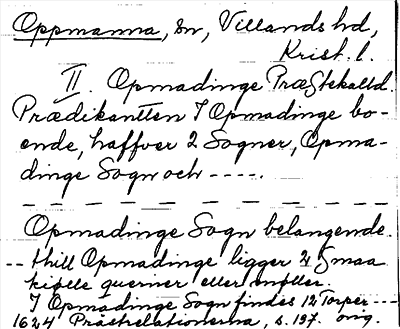 Oppmanna, sn, Villands hd,
Krist. l.
II. Opmadinge Præstekalld.
Prædikantten I Opmadinge bo-
ende, haffver 2 Sogner, Opma-
dinge Sogn och ----.
Opmadinge Sogn belangende.
-- thill Opmadinge ligger 2 Smaa
querner eller møller.
I Opmadinge Sogn findes 12 Torper ---
1624 Prästrelationerna, s. 197. orig.